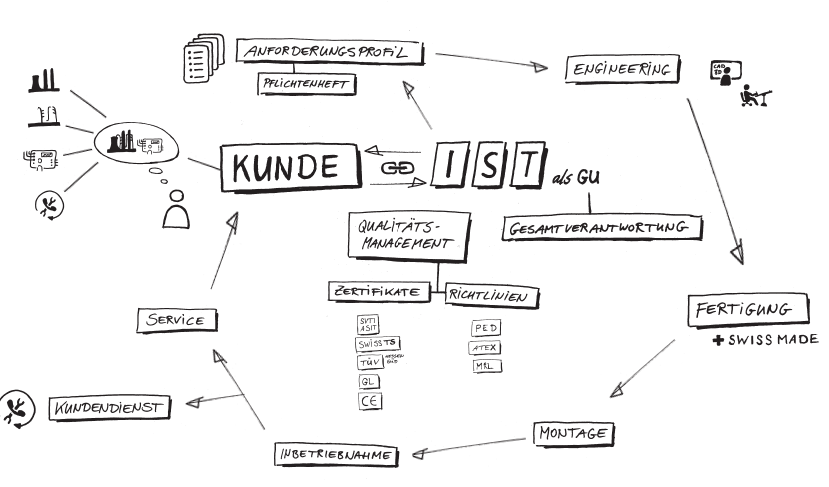 ANFORDERUNGSPROFIL
PFLICHTENHEFT
ENGINEERING
CAD
3D
KUNDE
IST als GU
GESAMTVERANTWORTUNG
QUALITÄTS-
MANAGEMENT
ZERTIFIKATE
RICHTLINIEN
SVTI
ASIT
SWISS TS
TÜV HESSEN
SÜD
GL
CE
PED
ATEX
MRL
FERTIGUNG
+ SWISS MADE
MONTAGE
INBETRIEBNAHME
KUNDENDIENST
SERVICE